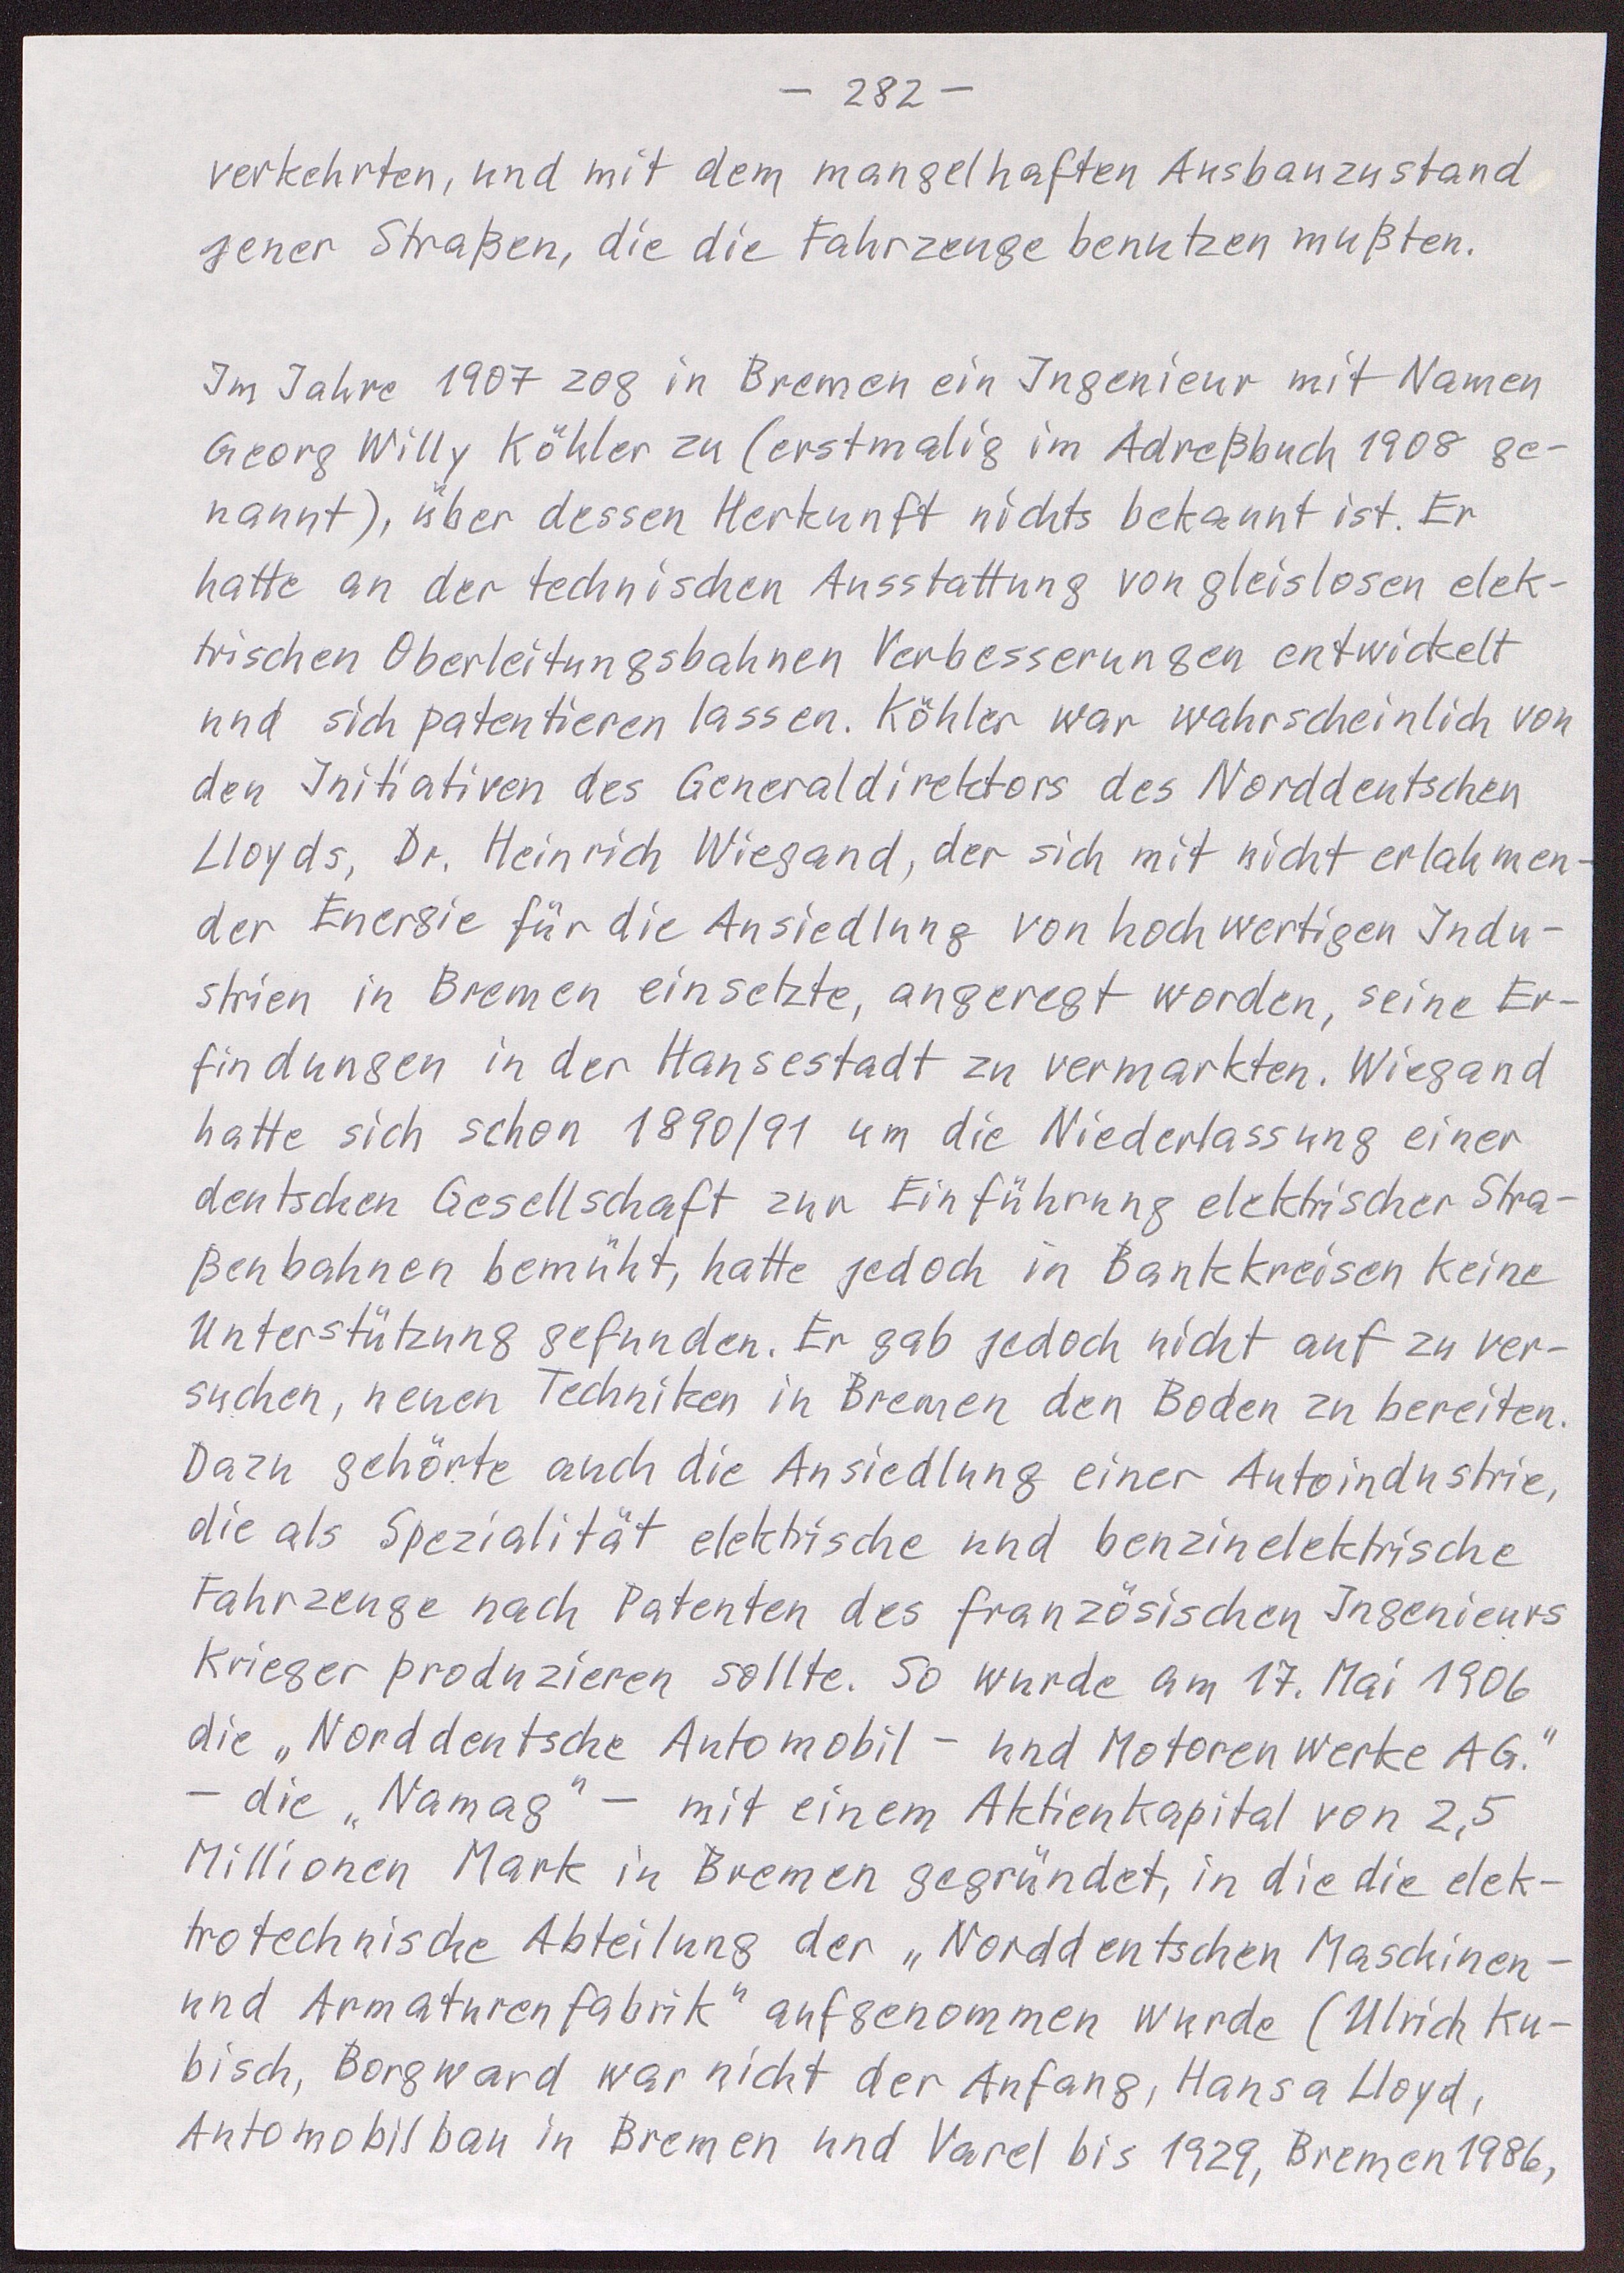 — 282 —
verkehrten, und mit dem mangelhaften Ausbauzustand
jener Straßen, die die Fahrzeuge benutzen mußten.
Im Jahre 1907 zog in Bremen ein Ingenieur mit Namen
Georg Willy Köhler zu (erstmalig im Adreßbuch 1908 ge-
nannt), über dessen Herkunft nichts bekannt ist. Er
hatte an der technischen Ausstattung von gleislosen elek-
trischen Oberleitungsbahnen Verbesserungen entwickelt
und sich patentieren lassen. Köhler war wahrscheinlich von
den Initiativen des Generaldirektors des Norddeutschen
Lloyds, Dr. Heinrich Wiegand, der sich mit nicht erlahmen-
der Energie für die Ansiedlung von hochwertigen Indu-
strien in Bremen einsetzte, angeregt worden, seine Er-
findungen in der Hansestadt zu vermarkten. Wiegand
hatte sich schon 1890/91 um die Niederlassung einer
deutschen Gesellschaft zur Einführung elektrischer Stra-
ßenbahnen bemüht, hatte jedoch in Bankkreisen keine
Unterstützung gefunden. Er gab jedoch nicht auf zu ver-
suchen, neuen Techniken in Bremen den Boden zu bereiten.
Dazu gehörte auch die Ansiedlung einer Autoindustrie,
die als Spezialität elektrische und benzinelektrische
Fahrzeuge nach Patenten des französischen Ingenieurs
Krieger produzieren sollte. So wurde am 17. Mai 1906
die „Norddeutsche Automobil- und Motorenwerke AG."
— die „Namag" — mit einem Aktienkapital von 2,5
Millionen Mark in Bremen gegründet, in die die elek-
trotechnische Abteilung der „Norddeutschen Maschinen-
und Armaturenfabrik" aufgenommen wurde (Ulrich Ku-
bisch, Borgward war nicht der Anfang, Hansa Lloyd,
Automobilbau in Bremen und Varel bis 1929, Bremen 1986,